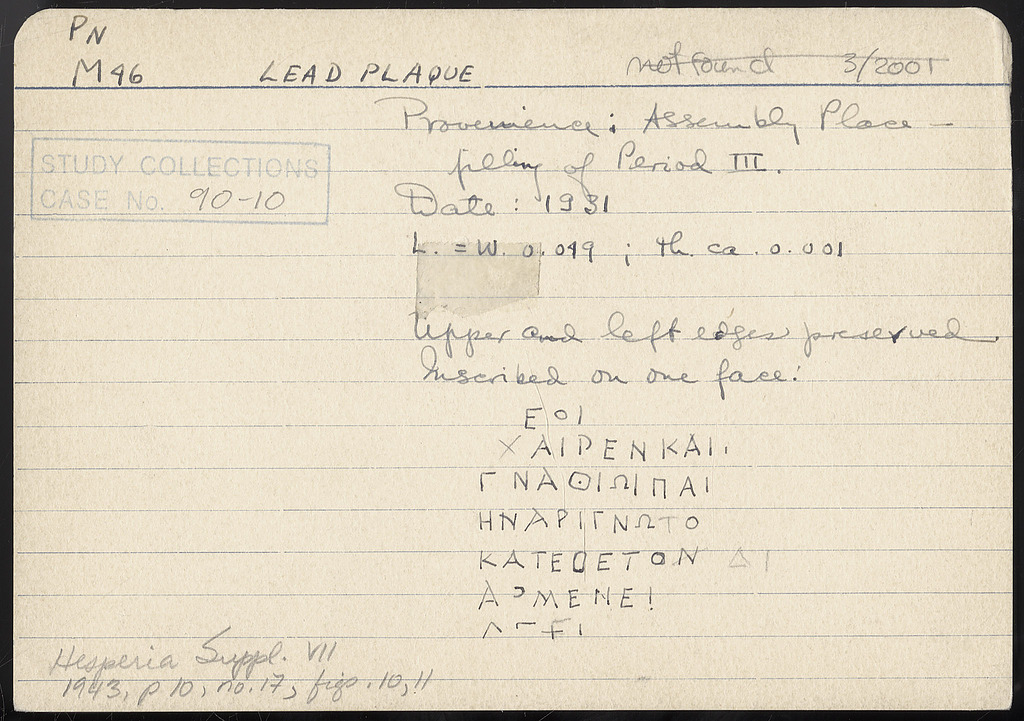 PN
M46 LEAD PLAQUE not found 3/2001
Provenience: Assembly Place –
filling of Period III.
STUDY COLLECTIONS
CASE No. 90-10
Date: 1931
L. = W. 0.049 ; th. ca. 0.001
Upper and left edges preserved
Inscribed on one face:
ΕΟΙ
ΧΑΙΡΕΝΚΑΙ
ΓΝΑΘΙΩΙΠΑΙ
ΗΝΑΡΙΓΝΩΤΟ
ΚΑΤΕΘΕΤΟΝ ΔΙ
ΜΕΝΕΙ
Hesperia Suppl. VII
1943, p 10, no. 17, figs. 10, 11